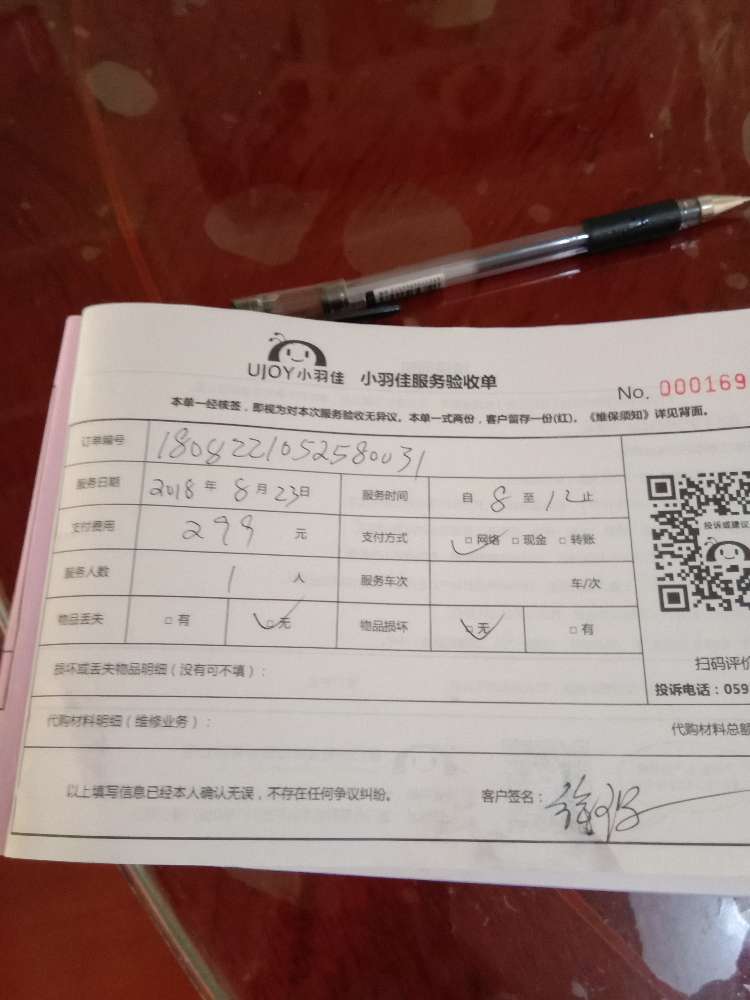 UJOY小羽佳 小羽佳服务验收单
No. 000169
本单一经核签，即视为对本次服务验收无异议。本单一式两份，客户留存一份(红)。《维保须知》详见背面。
订单编号 1808221052580031
服务日期 2018年8月23日 服务时间 自8至12止
支付费用 299元 支付方式 □网络 □现金 □转账
投诉或建议
服务人数 1人 服务车次 车/次
物品丢失 □有 □无 物品损坏 □无 □有
扫码评价
损坏或丢失物品明细（没有可不填）：
投诉电话：059
代购材料明细（维修业务）： 代购材料总额
以上填写信息已经本人确认无误，不存在任何争议纠纷。 客户签名：